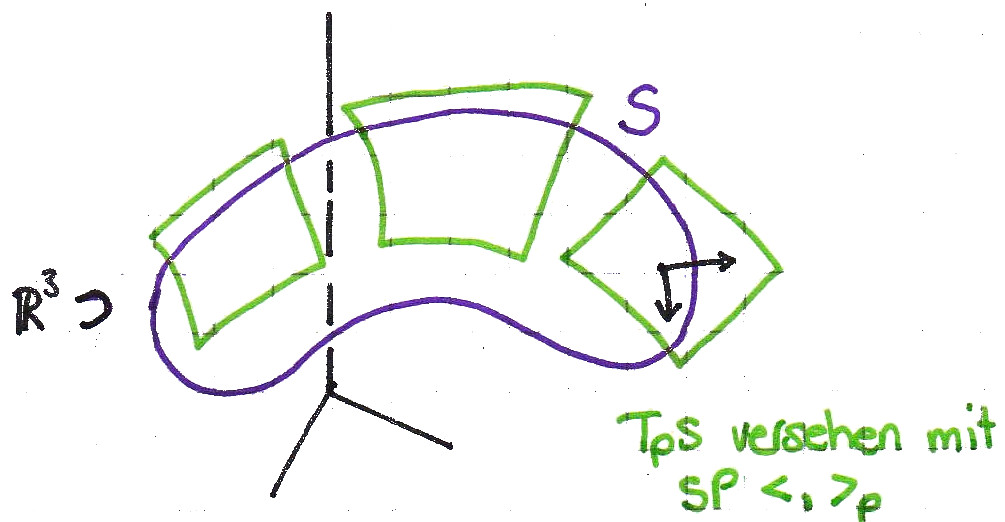 S
ℝ³ ⊃
TpS versehen mit
SP <,>p